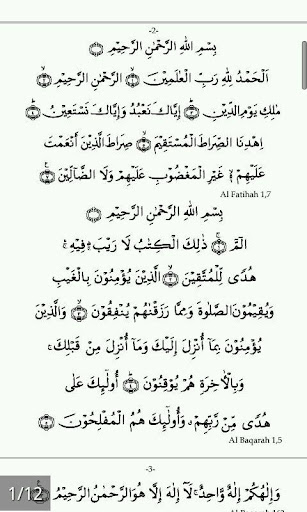 -2-
بِسْمِ اللهِ الرَّحْمٰنِ الرَّحِيْمِ ۝
اَلْحَمْدُ لِلّٰهِ رَبِّ الْعٰلَمِيْنَ ۝ الرَّحْمٰنِ الرَّحِيْمِ ۝
مٰلِكِ يَوْمِ الدِّيْنِ ۝ إِيَّاكَ نَعْبُدُ وَإِيَّاكَ نَسْتَعِيْنُ ۝
اِهْدِنَا الصِّرَاطَ الْمُسْتَقِيْمَ ۝ صِرَاطَ الَّذِيْنَ أَنْعَمْتَ
عَلَيْهِمْ ۙ غَيْرِ الْمَغْضُوْبِ عَلَيْهِمْ وَلَا الضَّآلِّيْنَ ۝
Al Fatihah 1,7
بِسْمِ اللهِ الرَّحْمٰنِ الرَّحِيْمِ ۝
الٓمّٓ ۝ ذٰلِكَ الْكِتٰبُ لَا رَيْبَ ۛ فِيْهِ ۛ
هُدًى لِّلْمُتَّقِيْنَ ۝ الَّذِيْنَ يُؤْمِنُوْنَ بِالْغَيْبِ
وَيُقِيْمُوْنَ الصَّلٰوةَ وَمِمَّا رَزَقْنٰهُمْ يُنْفِقُوْنَ ۝ وَالَّذِيْنَ
يُؤْمِنُوْنَ بِمَآ أُنْزِلَ إِلَيْكَ وَمَآ أُنْزِلَ مِنْ قَبْلِكَ ۚ
وَبِالْاٰخِرَةِ هُمْ يُوْقِنُوْنَ ۝ أُولٰٓئِكَ عَلٰى
هُدًى مِّنْ رَّبِّهِمْ ۙ وَأُولٰٓئِكَ هُمُ الْمُفْلِحُوْنَ ۝
Al Baqarah 1,5
-3-
وَإِلٰهُكُمْ إِلٰهٌ وَّاحِدٌ ۚ لَآ إِلٰهَ إِلَّا هُوَ الرَّحْمٰنُ الرَّحِيْمُ ۝
1/12